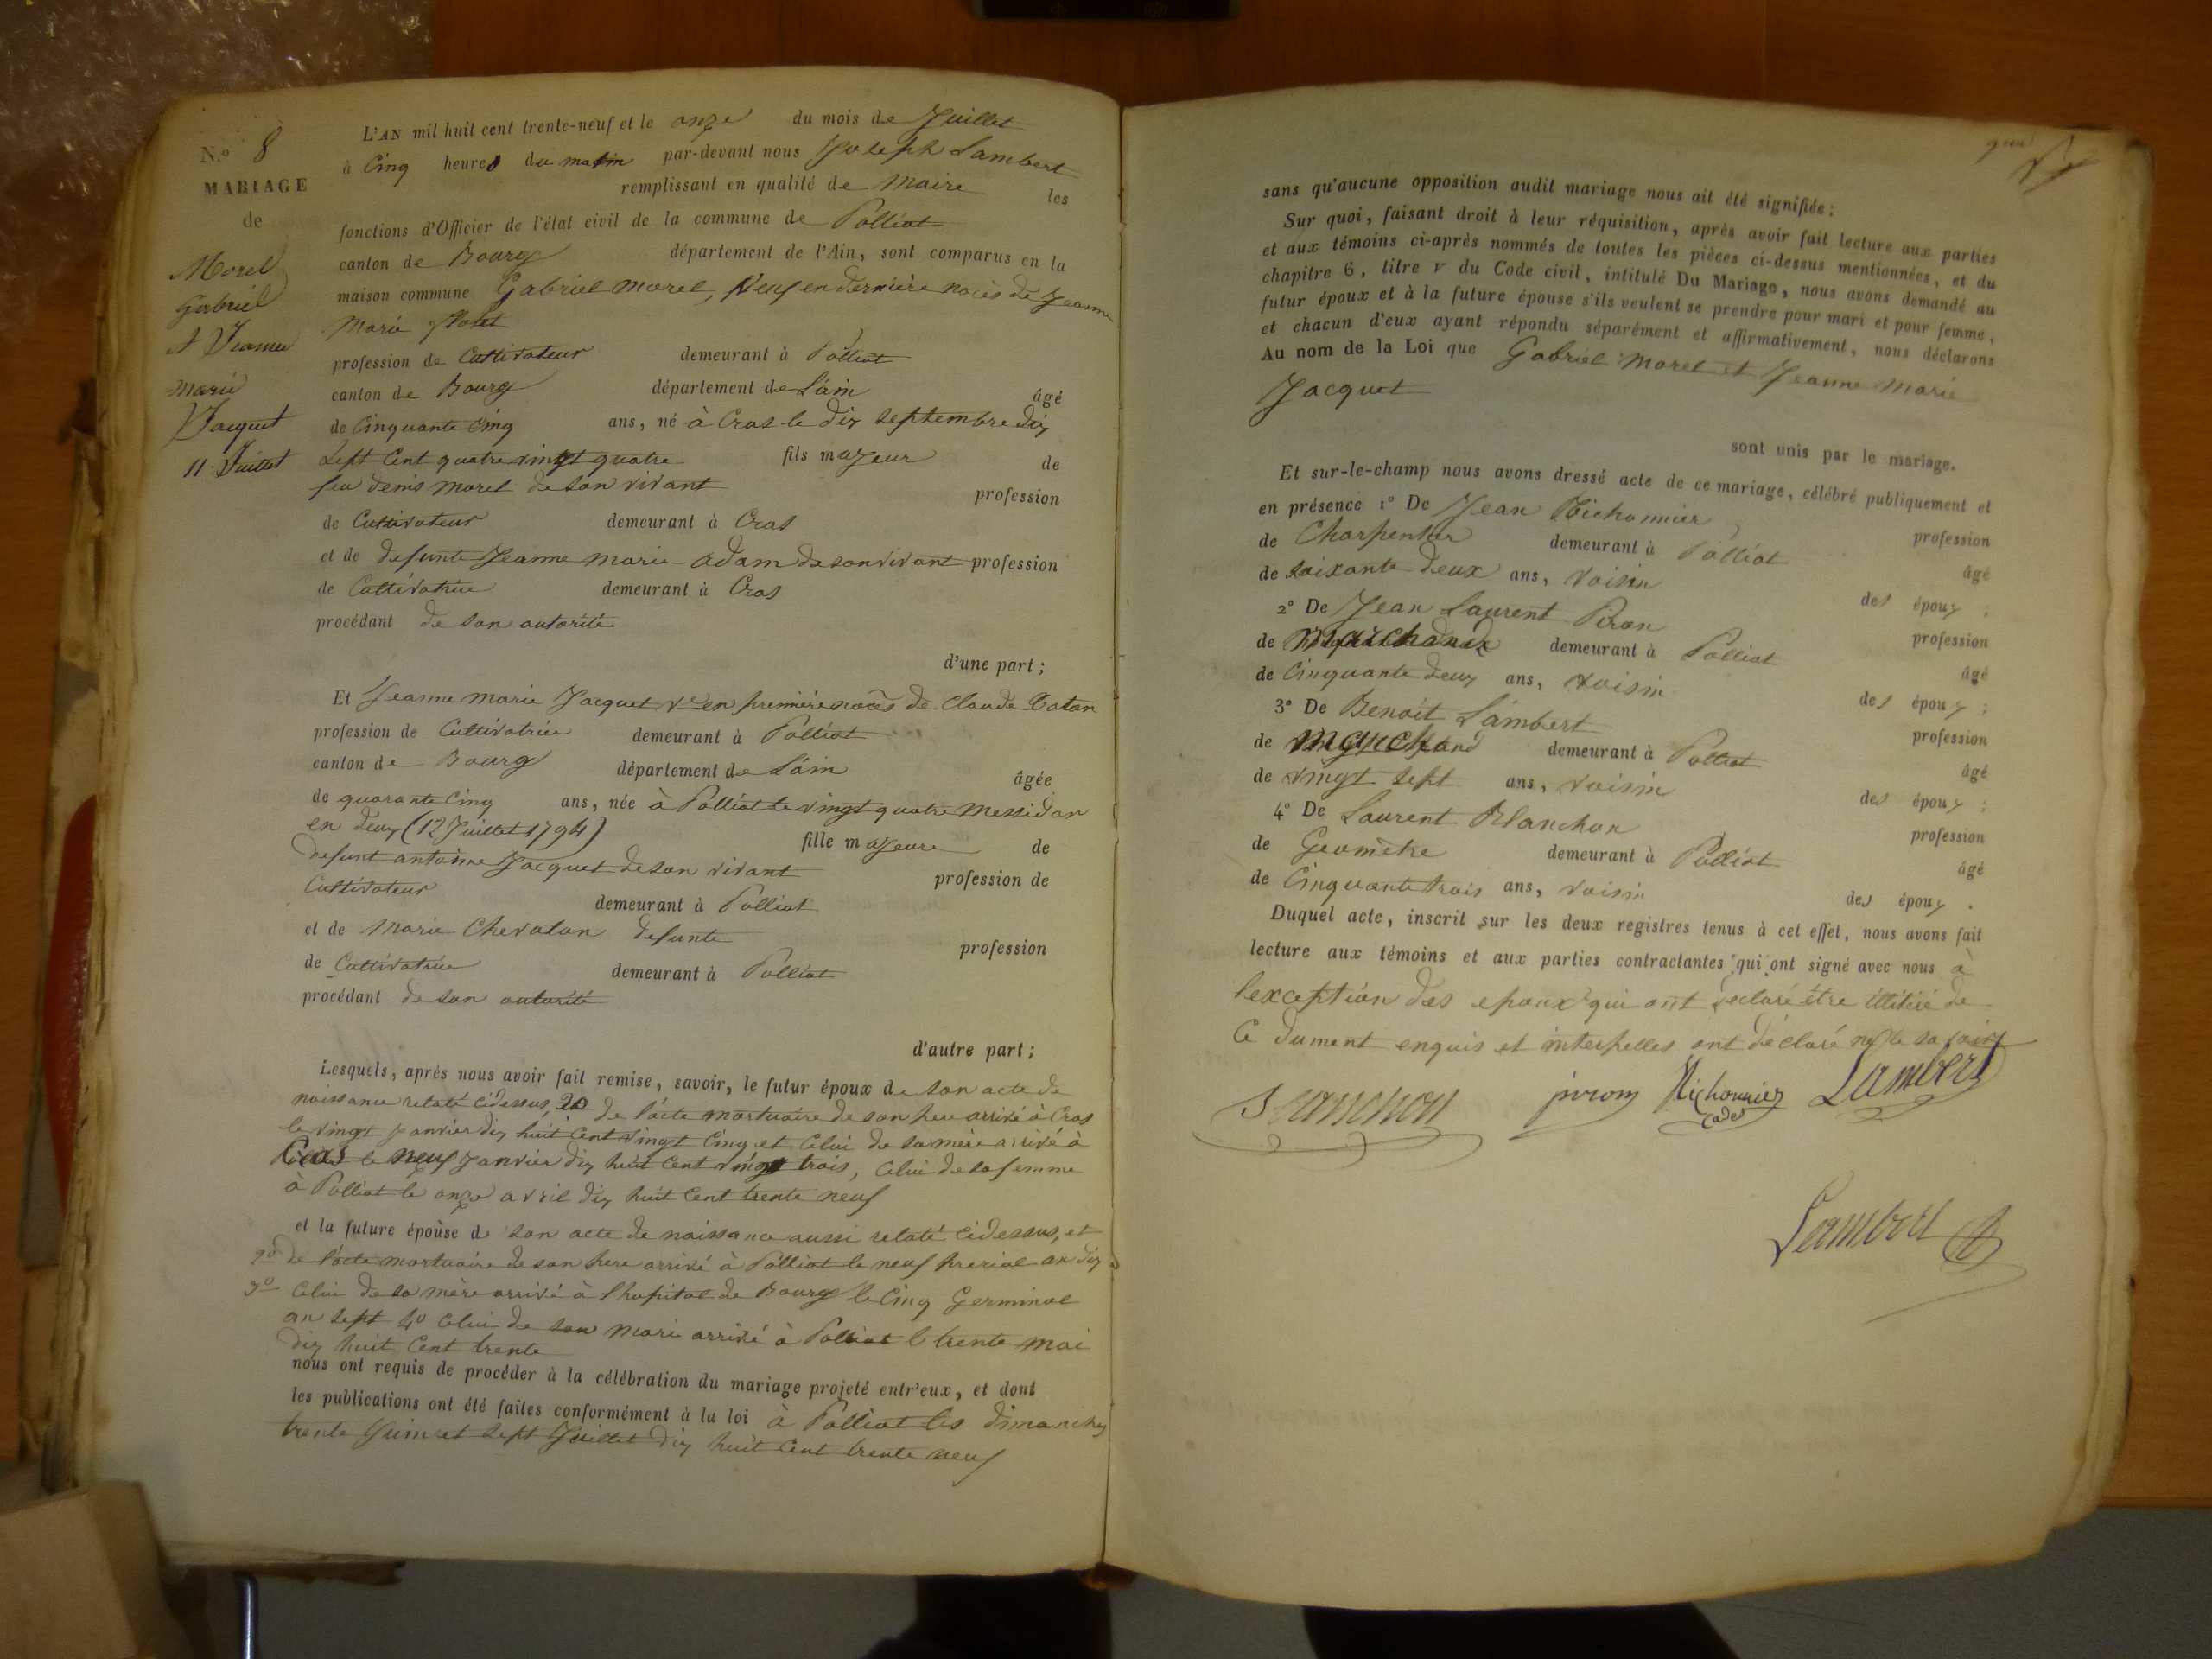 N.o 8
MARIAGE
de
Morel
Gabriel
et Jeanne
marie
Jacquet
11 Juillet
L'AN mil huit cent trente-neuf et le onze du mois de Juillet
à Cinq heures du matin par-devant nous Joseph Lambert
remplissant en qualité de Maire les
fonctions d'Officier de l'état civil de la commune de Polliat
canton de Bourg département de l'Ain, sont comparus en la
maison commune Gabriel morel, Veuf en dernière noces de Jeanne
Marie
profession de Cultivateur demeurant à Polliat
canton de Bourg département de L'ain âgé
de Cinquante Cinq ans, né à Cras le dix Septembre dix
Sept Cent quatre vingt quatre fils majeur de
feu denis morel de son vivant profession
de Cultivateur demeurant à Cras
et de defunte Jeanne marie adam de son vivant profession
de Cultivatrice demeurant à Cras
procédant de son autorité
d'une part ;
Et Jeanne marie Jacquet Ve en première noces de Claude Caton
profession de Cultivatrice demeurant à Polliat
canton de Bourg département de L'ain âgée
de quarante Cinq ans, née à Polliat le vingt quatre Messidor
en deux (12 Juillet 1794) fille majeure de
defunt antoine Jacquet de son vivant profession de
Cultivateur demeurant à Polliat
et de Marie Chevalon defunte profession
de Cultivatrice demeurant à Polliat
procédant de son autorité
d'autre part ;
Lesquels, après nous avoir fait remise, savoir, le futur époux de son acte de
naissance relaté cidessus, 2o de l'acte mortuaire de son père arrivé à Cras
le vingt Janvier dix huit Cent vingt Cinq et Celui de sa mère arrivé à
Cras le neuf Janvier dix huit Cent vingt trois, Celui de sa femme
à Polliat le onze avril dix huit Cent trente neuf
et la future épouse de son acte de naissance aussi relaté cidessus, et
2o de l'acte mortuaire de son père arrivé à Polliat le neuf prerial an dix
3o Celui de sa mère arrivé à l'hopital de Bourg le Cinq Germinal
an Sept 4o Celui de son mari arrivé à Polliat le trente mai
dix huit Cent trente
nous ont requis de procéder à la célébration du mariage projeté entr'eux, et dont
les publications ont été faites conformément à la loi à Polliat les dimanches
trente Juin et Sept Juillet dix huit Cent trente neuf
sans qu'aucune opposition audit mariage nous ait été signifiée ;
Sur quoi, faisant droit à leur réquisition, après avoir fait lecture aux parties
et aux témoins ci-après nommés de toutes les pièces ci-dessus mentionnées, et du
chapitre 6, titre v du Code civil, intitulé Du Mariage, nous avons demandé au
futur époux et à la future épouse s'ils veulent se prendre pour mari et pour femme,
et chacun d'eux ayant répondu séparément et affirmativement, nous déclarons
Au nom de la Loi que Gabriel morel et Jeanne Marie
Jacquet
sont unis par le mariage.
Et sur-le-champ nous avons dressé acte de ce mariage, célébré publiquement et
en présence 1o De Jean Michonnier profession
de Charpentier demeurant à Polliat âgé
de Soixante deux ans, voisin des époux ;
2o De Jean Laurent Piron profession
de marchand demeurant à Polliat âgé
de Cinquante deux ans, voisin des époux ;
3o De Benoit Lambert profession
de marchand demeurant à Polliat âgé
de vingt Sept ans, voisin des époux ;
4o De Laurent Blanchon profession
de Geomètre demeurant à Polliat âgé
de Cinquante trois ans, voisin des époux .
Duquel acte, inscrit sur les deux registres tenus à cet effet, nous avons fait
lecture aux témoins et aux parties contractantes qui ont signé avec nous à
lexception des epoux qui ont declaré être illitéré de
Ce dument enquis et interpelles ont déclaré ne le savoir
Blanchon piron Michonnier Lambert
cadet
Lambert